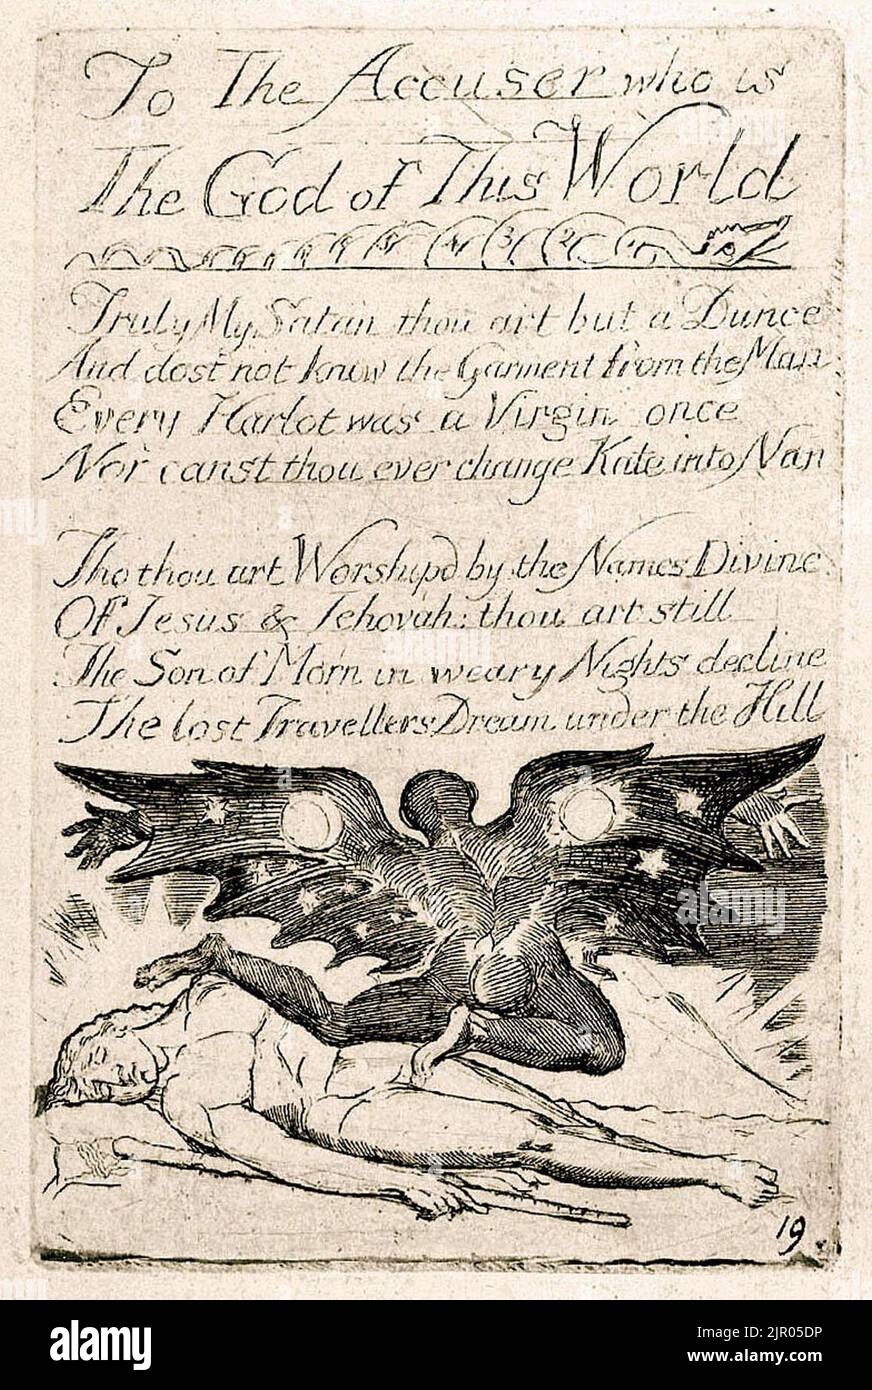 To The Accuser who is
The God of This World
5 4 3 2 1
Truly My Satan thou art but a Dunce
And dost not know the Garment from the Man
Every Harlot was a Virgin once
Nor canst thou ever change Kate into Nan
Tho thou art Worship'd by the Names Divine
Of Jesus & Jehovah: thou art still
The Son of Morn in weary Nights decline
The lost Travellers Dream under the Hill
19
alamy
alamy
Image ID: 2JR05DP
www.alamy.com